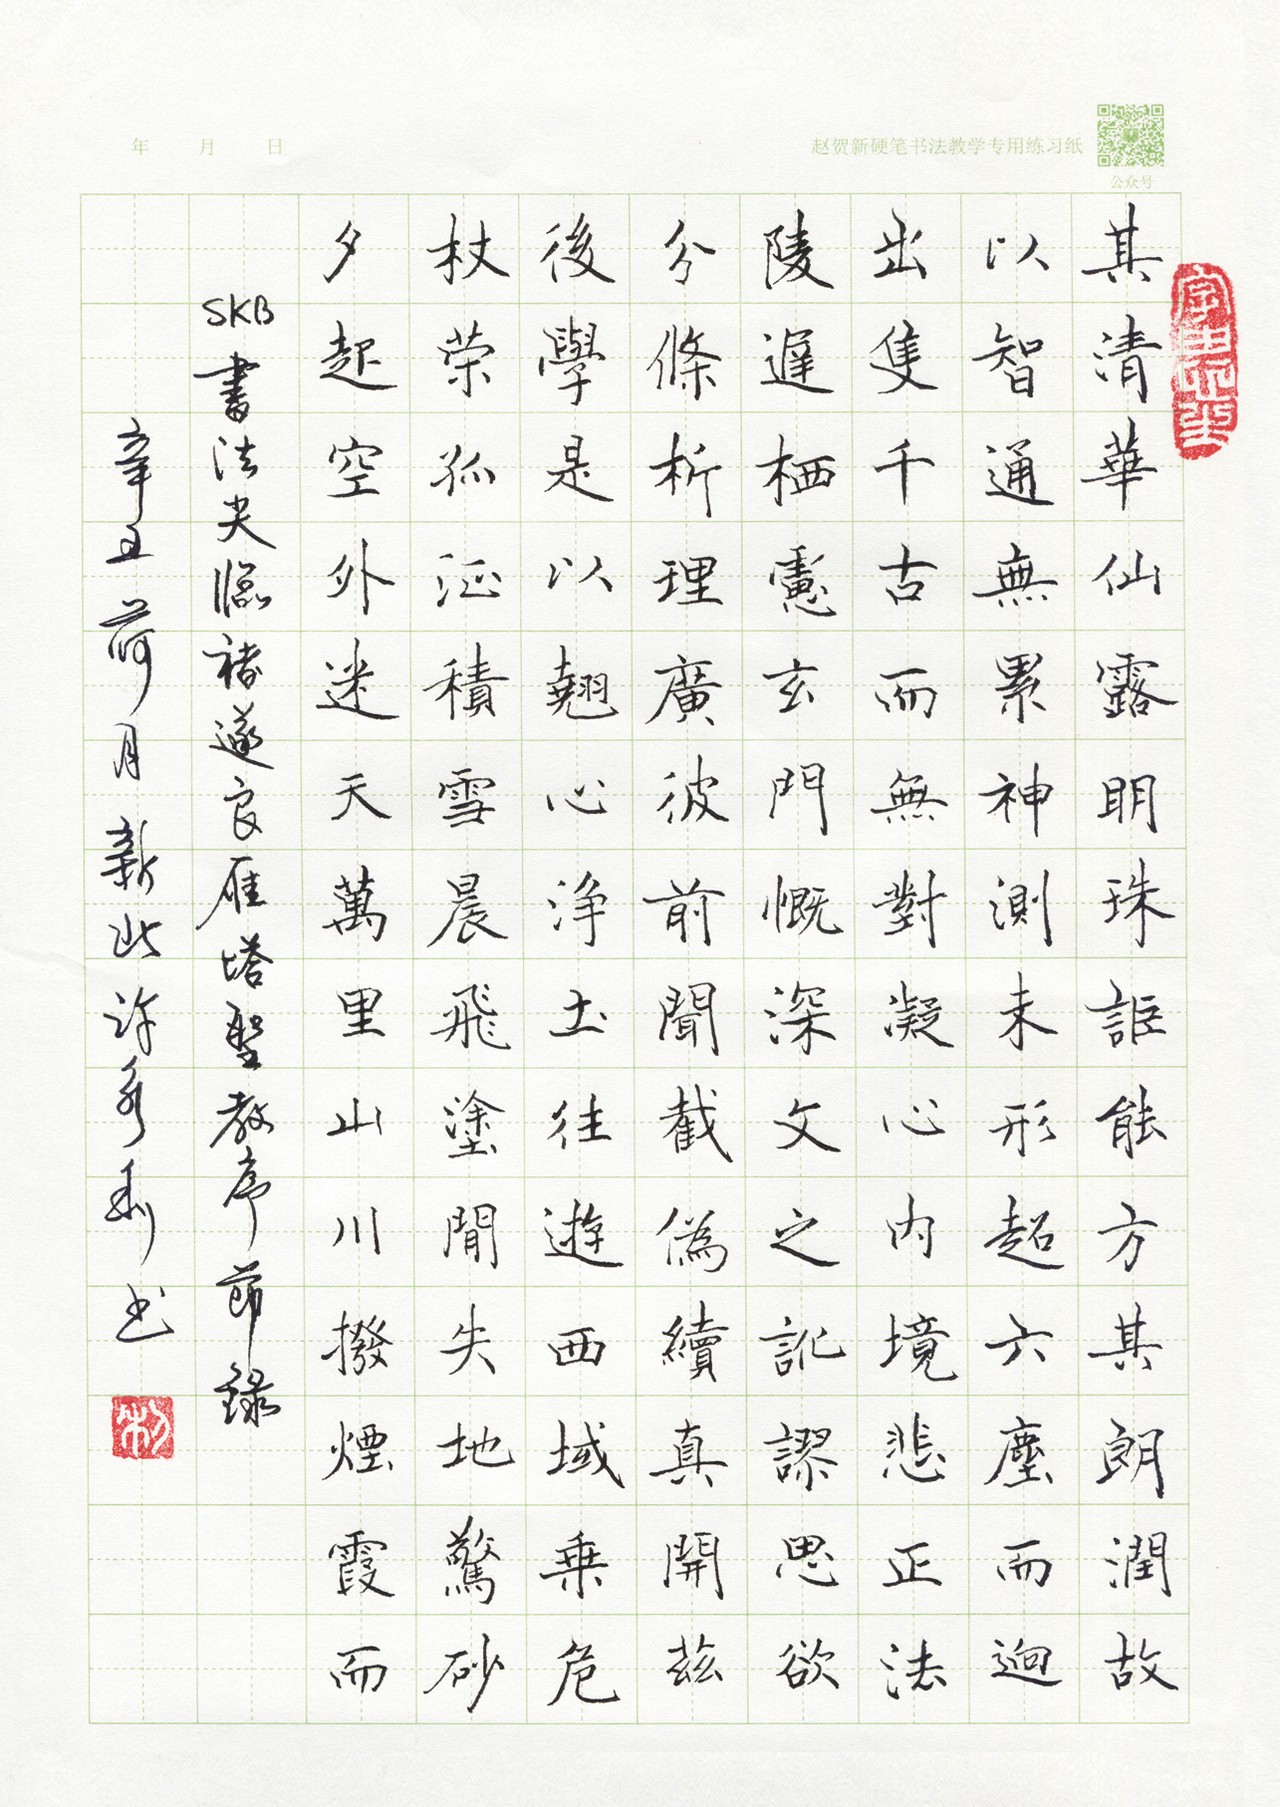 年 月 日
赵贺新硬笔书法教学专用练习纸
公众号
其清華仙露明珠詎能方其朗潤故
以智通無累神測未形超六塵而迥
出隻千古而無對凝心内境悲正法
陵遲栖慮玄門慨深文之訛謬思欲
分條析理廣彼前聞截偽續真開茲
後學是以翹心浄土往遊西域乗危
杖荣孤征積雪晨飛塗閒失地驚砂
夕起空外迷天萬里山川撥煙霞而
SKB書法尖臨褚遂良雁塔聖教序節錄
辛丑荷月新北許永利书